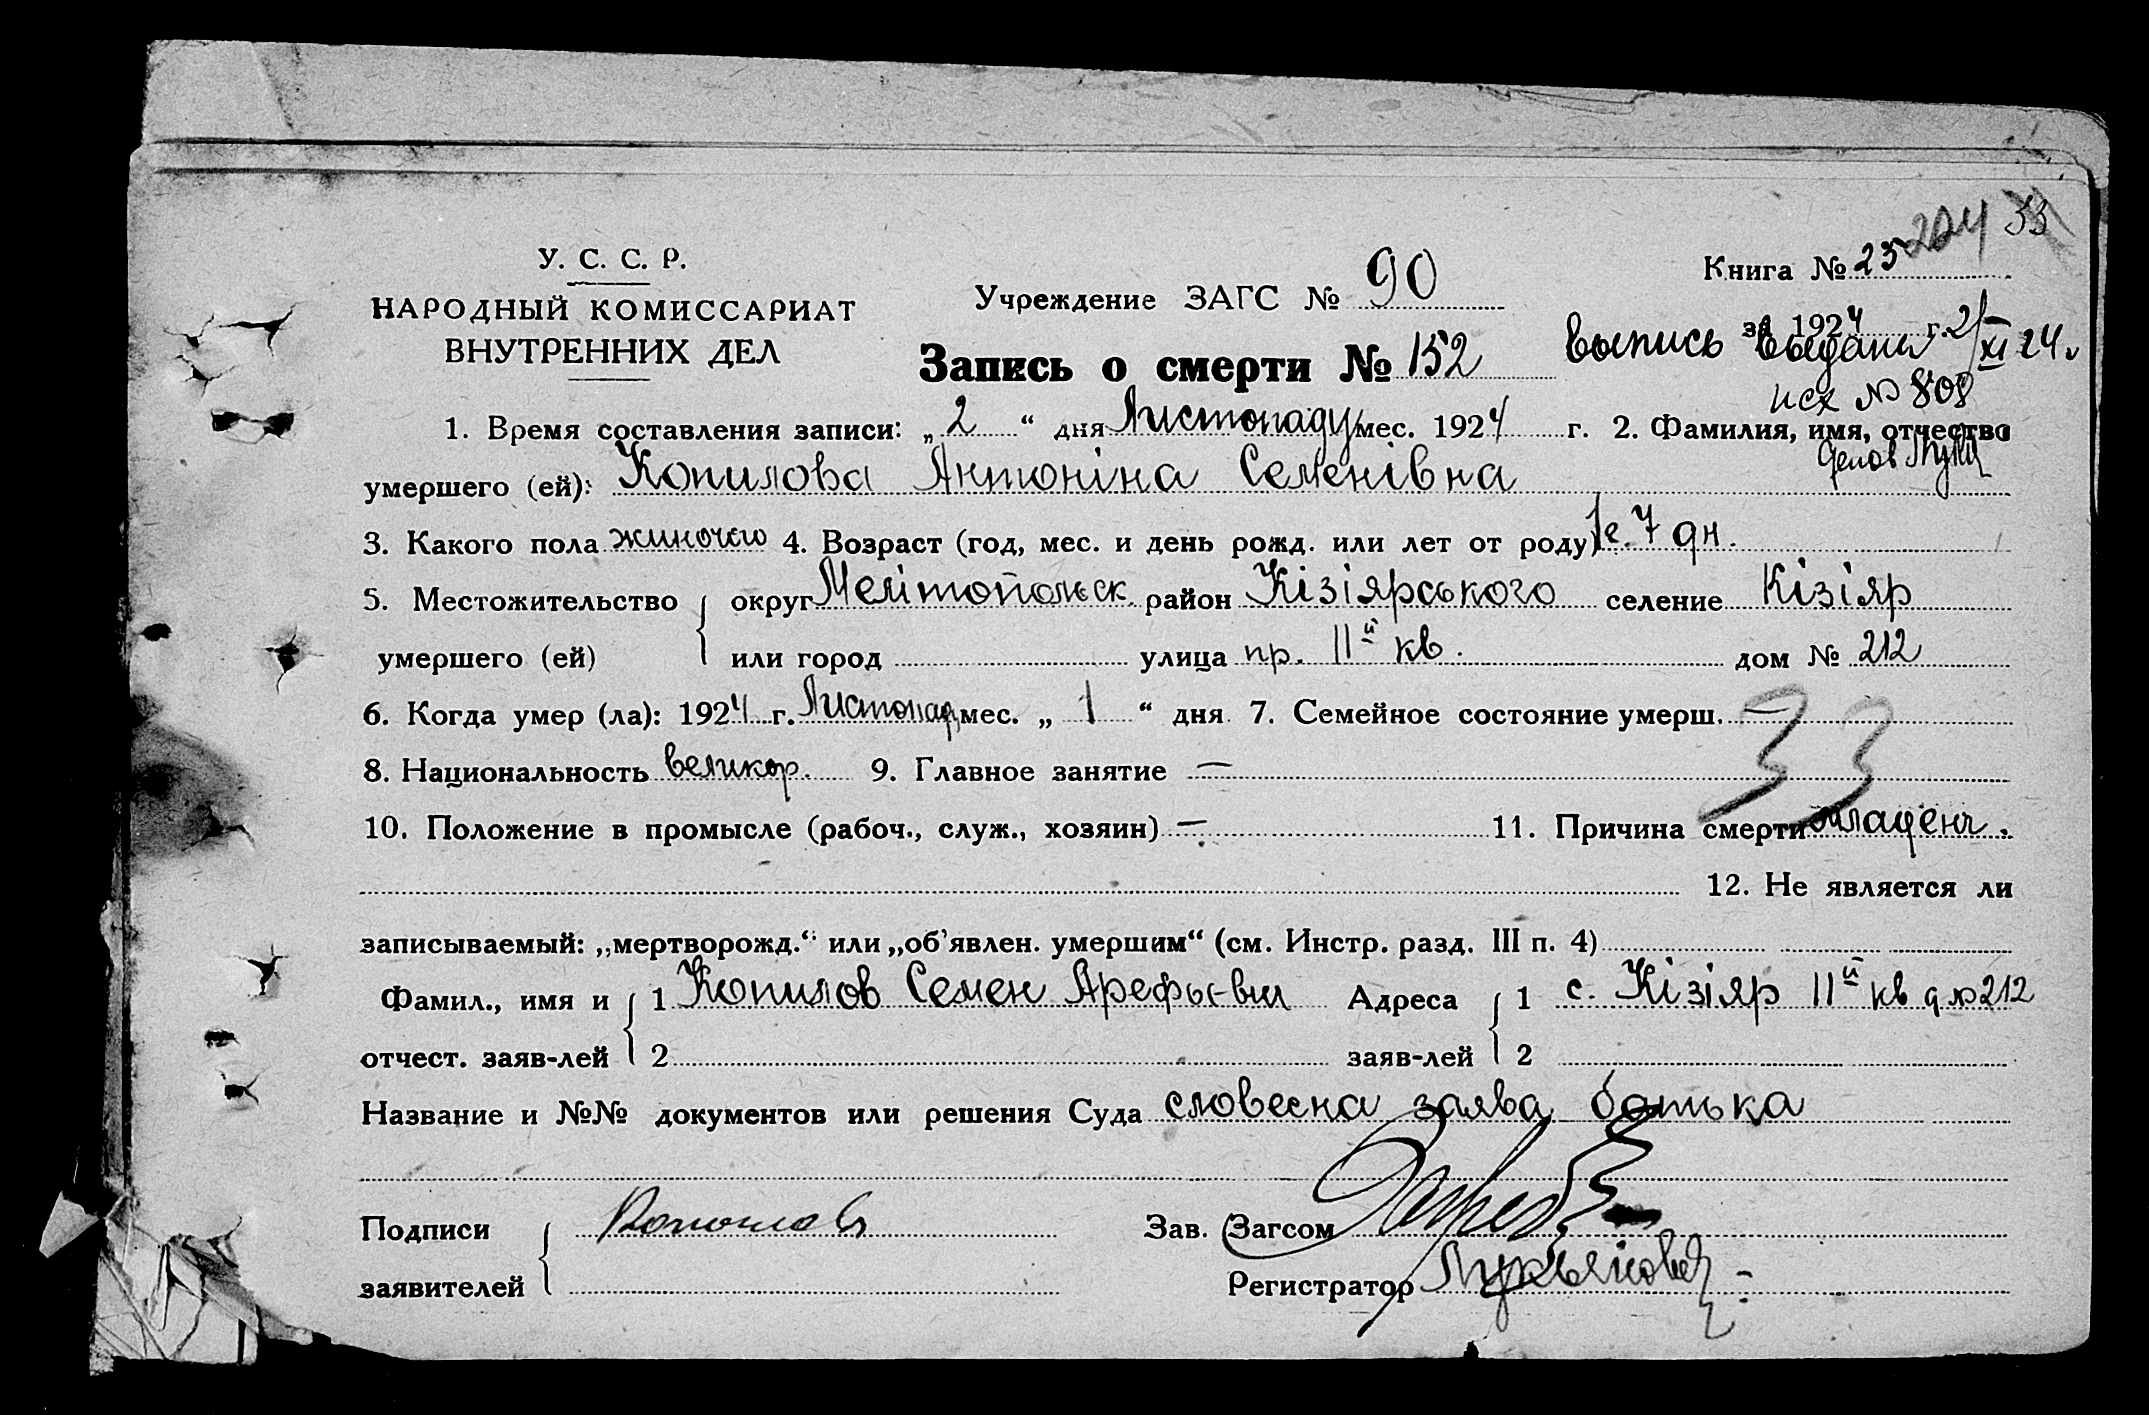 204 33
У. С. С. Р.
НАРОДНЫЙ КОМИССАРИАТ
ВНУТРЕННИХ ДЕЛ
Учреждение ЗАГС № 90
Книга № 23
за 1924 г.
Запись о смерти № 152
Выпись выдана 2/XI 24
исх № 808
1. Время составления записи: „2“ дня Листопаду мес. 1924 г. 2. Фамилия, имя, отчество
умершего (ей): Копилова Антоніна Семенівна
3. Какого пола жиночого 4. Возраст (год, мес. и день рожд. или лет от роду) 7 дн.
5. Местожительство округ Мелітопольск. район Кізіярського селение Кізіяр
умершего (ей) или город улица пр. 11й кв. дом № 212
6. Когда умер (ла): 1924 г. Листопад мес. „1“ дня 7. Семейное состояние умерш. —
33
8. Национальность великор. 9. Главное занятие —
10. Положение в промысле (рабоч., служ., хозяин) — 11. Причина смерти младенч.
12. Не является ли
записываемый: „мертворожд.“ или „об’явлен. умершим“ (см. Инстр. разд. III п. 4)
Фамил., имя и 1 Копилов Семен Арефьевич Адреса 1 с. Кізіяр 11й кв д № 212
отчест. заяв-лей 2 заяв-лей 2
Название и №№ документов или решения Суда словесна заява батька
Подписи Копылов Зав. Загсом
заявителей Регистратор